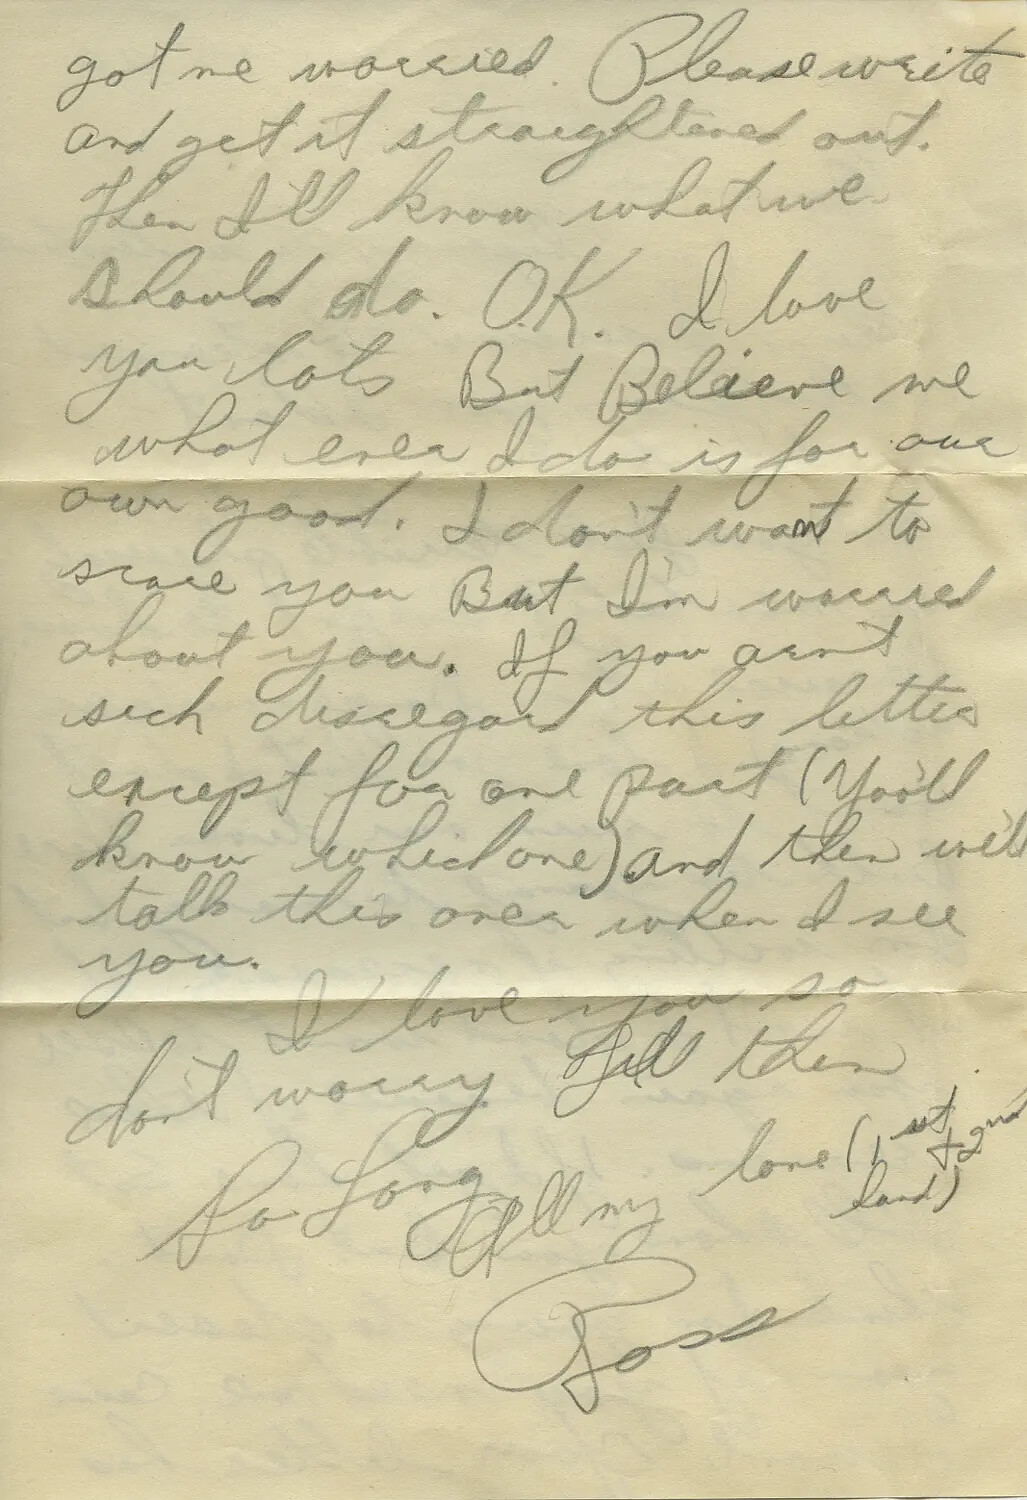 got me worried. Please write
and get it straightened out.
Then I'll know what we
should do. O.K. I love
you lots But Believe me
what ever I do is for our
own good. I don't want to
scare you But I'm worried
about you. If you arn't
sick disregard this letter
except for one part (You'll
know which one) and then we'll
talk this over when I see
you.
I love you so
don't worry Till then
So Long
All my love (1 st + 2nd
hand)
Ross